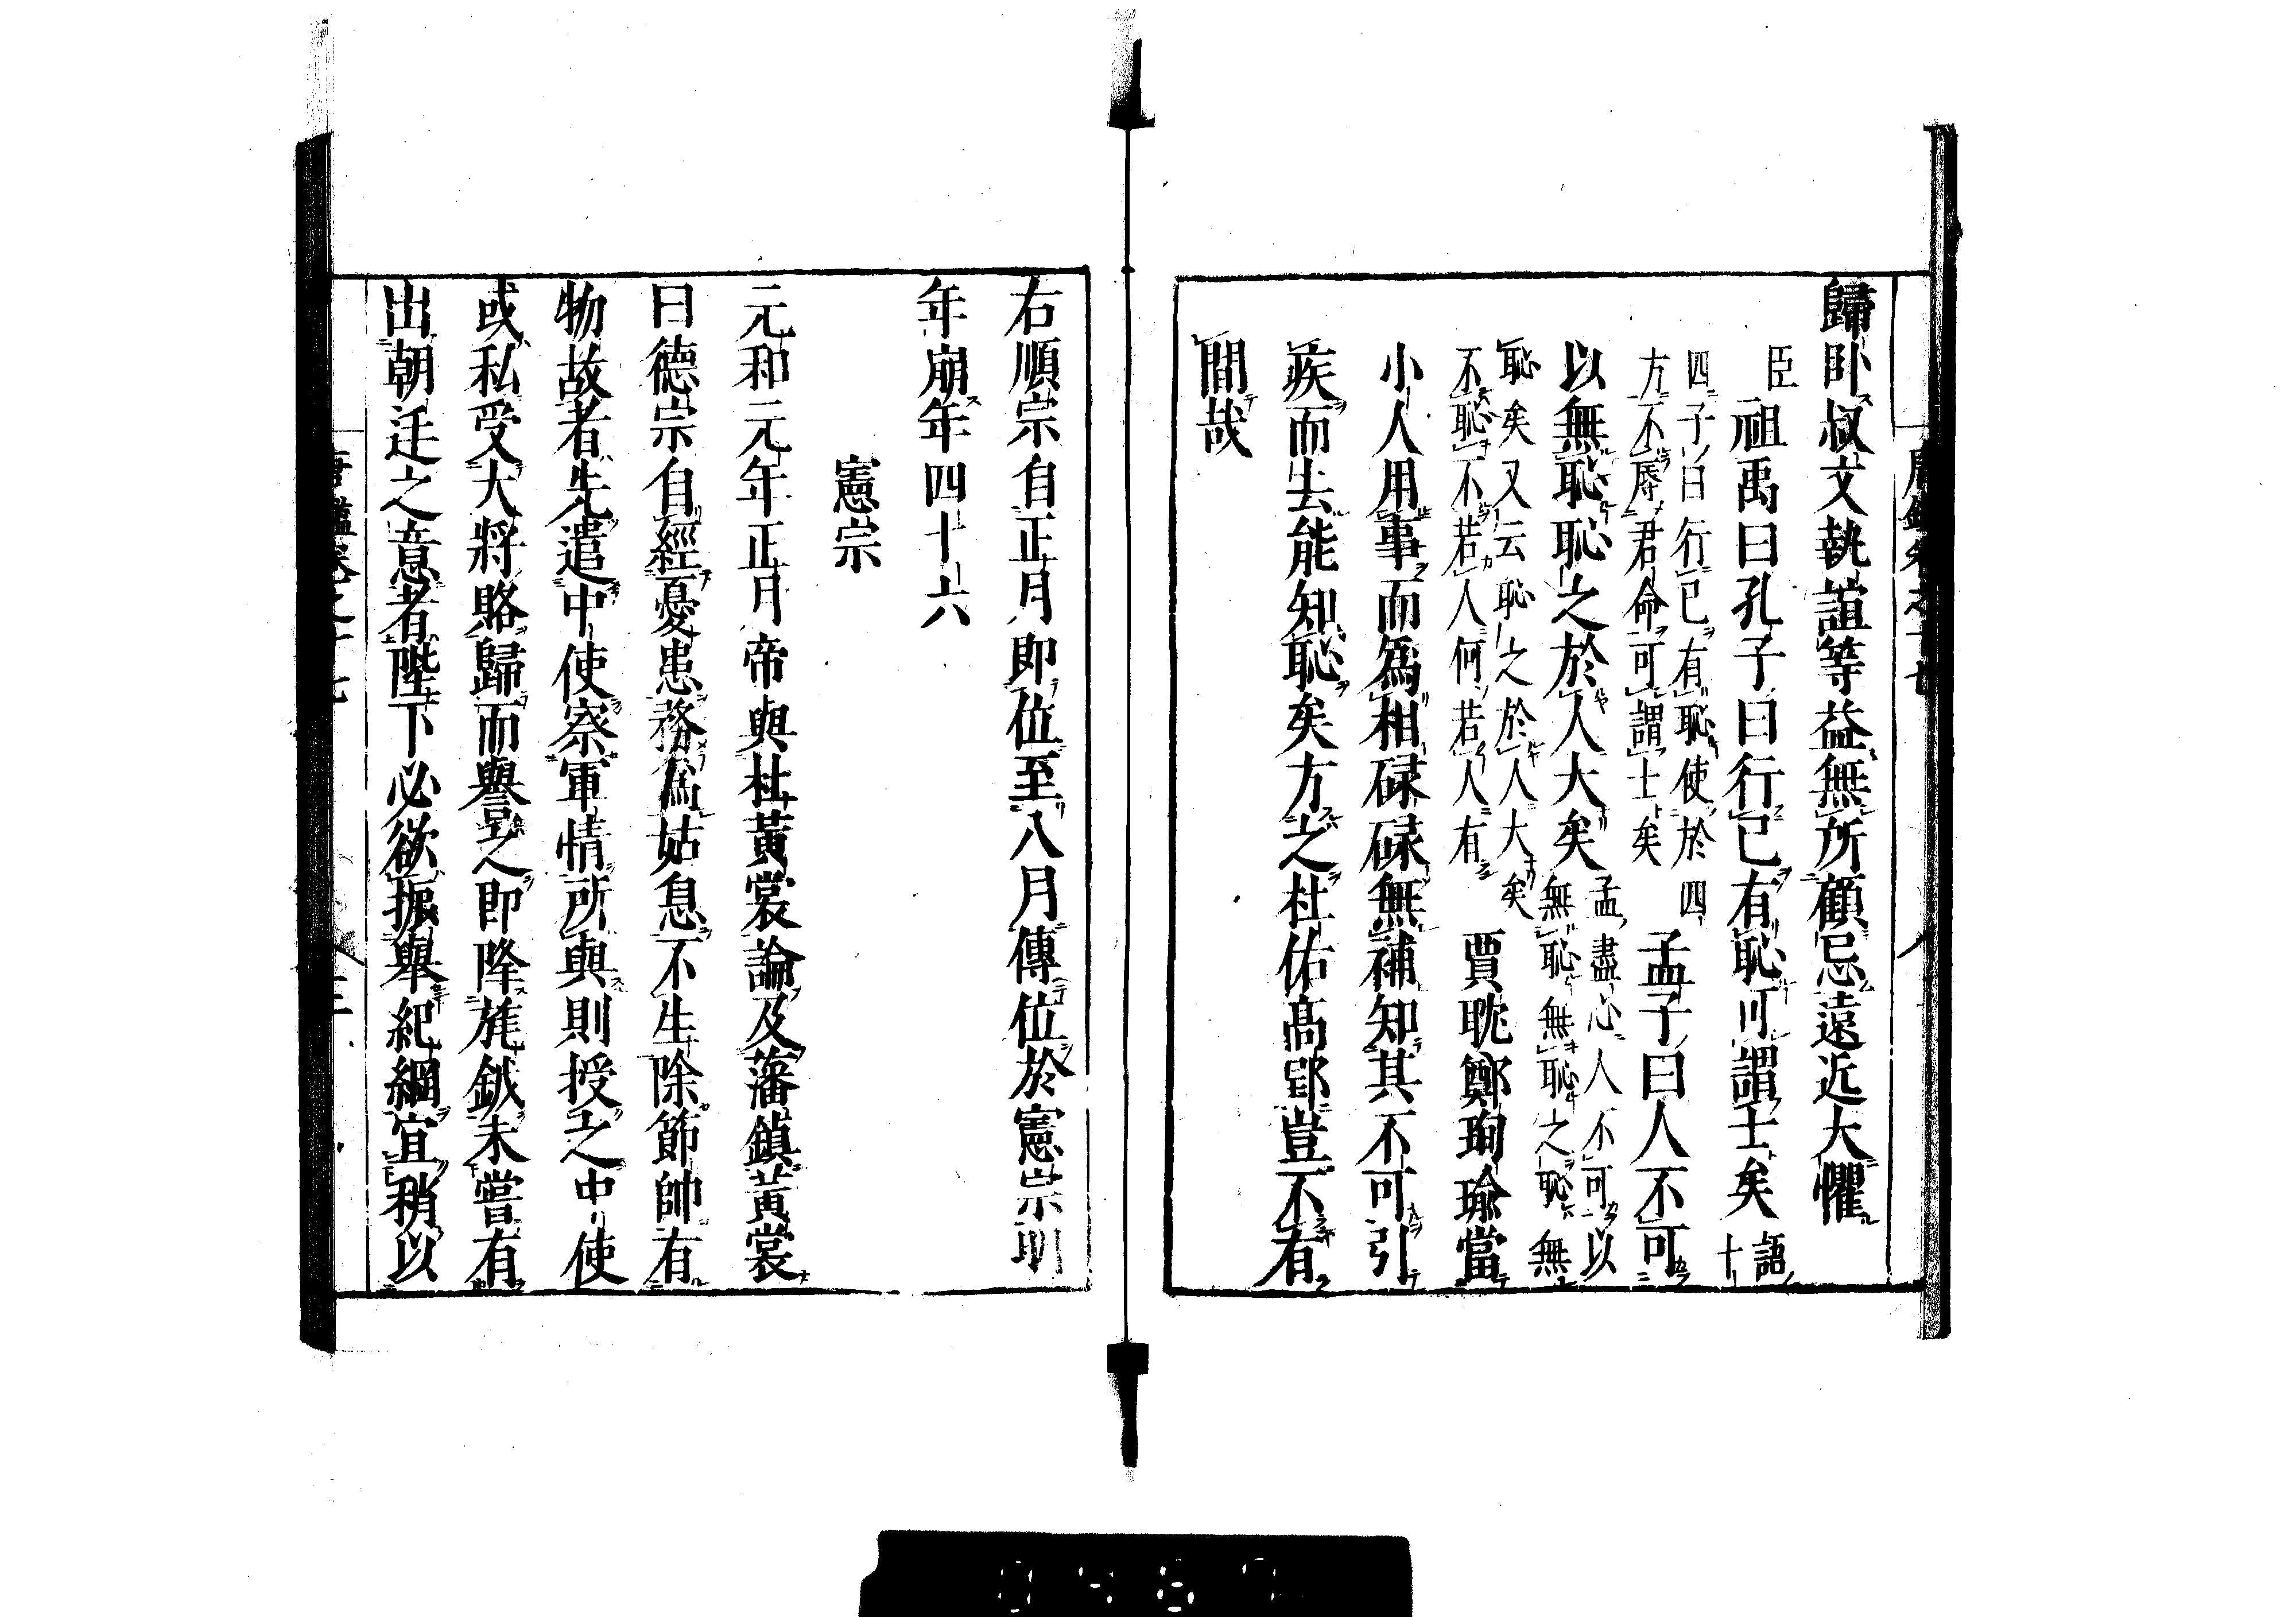 歸卧叔文執誼等益無所顧忌遠近大懼
臣祖禹曰孔子曰行已有恥可謂士矣語十
四子曰行已有恥使於四
方不辱君命可謂士矣孟子曰人不可
以無恥恥之於人大矣孟盡心人不可以
無恥無恥之恥無
恥矣又云恥之於人大矣
不恥不若人何若人有賈耽鄭珣瑜當
小人用事而為相碌碌無補知其不可引
疾而去能知恥矣方之杜佑高郢豈不有
間哉
右順宗自正月即位至八月傳位於憲宗明
年崩年四十六
憲宗
元和元年正月帝與杜黃裳論及藩鎮黃裳
曰德宗自經憂患務為姑息不生除節帥有
物故者先遣中使察軍情所與則授之中使
或私受大將賂歸而譽之即降旄鉞未嘗有
出朝廷之意者陛下必欲振舉紀綱宜稍以